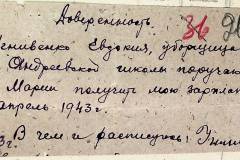 Доверенность
36
Евдокия, уборщица
Андреевской школы поручаю
Марии получить мою зарплат
апрель 1943г.
В чем и расписуюсь: